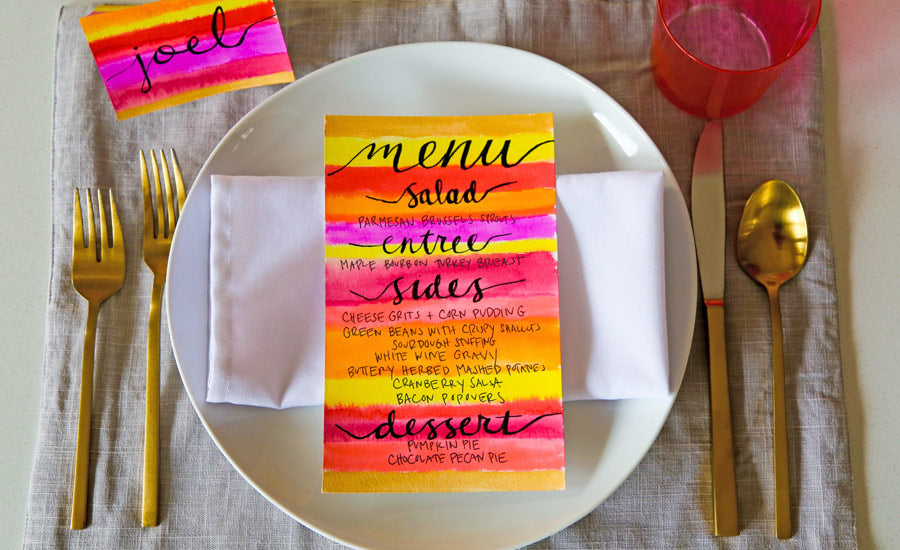 joel
menu
salad
PARMESAN BRUSSELS SPROUTS
entree
MAPLE BOURBON TURKEY BREAST
sides
CHEESE GRITS + CORN PUDDING
GREEN BEANS WITH CRISPY SHALLOTS
SOURDOUGH STUFFING
WHITE WINE GRAVY
BUTTERY HERBED MASHED POTATOES
CRANBERRY SALSA
BACON POPOVERS
dessert
PUMPKIN PIE
CHOCOLATE PECAN PIE